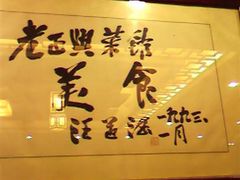 老正興菜館
美食
汪道涵
一九九三、
一月